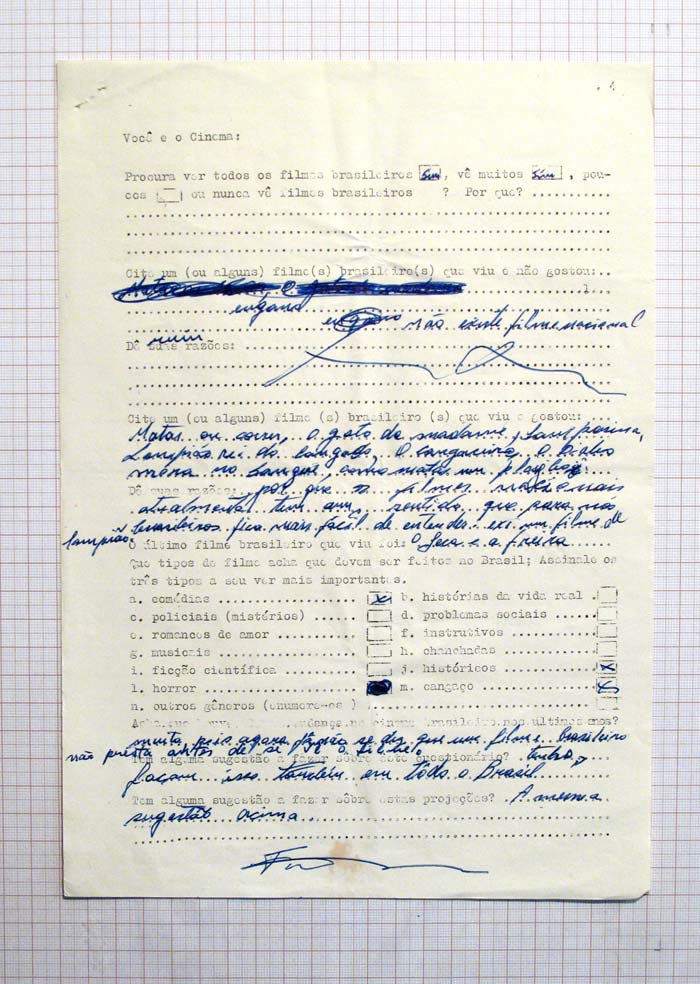 Você e o Cinema:
Procura ver todos os filmes brasileiros Sim, vê muitos Sim , pou-
cos ou nunca vê filmes brasileiros ? Por que? ............
Cite um (ou alguns) filme(s) brasileiro(s) que viu e não gostou:..
engano
engano não existe filme nacional
ruim
Dê suas razões:
Cite um (ou alguns) filme (s) brasileiro (s) que viu e gostou:
Matar ou correr, o gato de madame,
Lampião rei do cangaço, O cangaceiro, O Diabo
mora no sangue, como matar um playboy
Dê suas razões: por que os filmes nacionais
atualmente tem um sentido que para nós
brasileiros fica mais facil de entender: ex: um filme de
lampião.
O último filme brasileiro que viu foi: O Jeca e a freira
Que tipos de filme acha que devem ser feitos no Brasil; Assinale os
três tipos a seu ver mais importantes.
a. comédias ................ x b. histórias da vida real .
c. policiais (mistérios) ...... d. problemas sociais ......
e. romances de amor ......... f. instrutivos ............
g. musicais ................ h. chanchadas ............
i. ficção científica ......... j. históricos ............ x
l. horror ................ m. cangaço ............... x
n. outros gêneros (enumere-os ) ..........................
Acha que houve mudança no cinema brasileiro nos últimos anos?
muita, pois agora não se diz que um filme brasileiro
não presta antes de se ver o
Tem alguma sugestão a fazer sôbre este questionário? tenho,
façam isso também em todo o Brasil
Tem alguma sugestão a fazer sôbre estas projeções? A mesma
sugestão acima